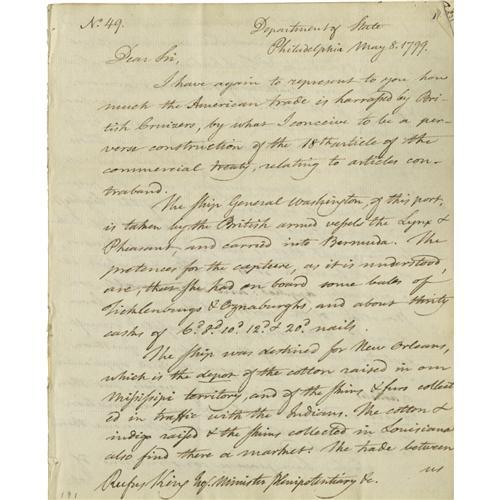 No. 49.
Department of State
Philadelphia May 8. 1799.
Dear Sir,
I have again to represent to you how
much the American trade is harrassed by Bri-
tish Cruizers, by what I conceive to be a per-
verse construction of the 18th article of the
commercial treaty, relating to articles con-
traband.
The ship General Washington, of this port,
is taken by the British armed vessels the Lynx &
Pheasant, and carried into Bermuda. The
pretences for the capture, as it is understood,
are, that she had on board some bales of
Ticklenburgs & Oznaburghs, and about thirty
casks of 6d. 8d. 10d. 12d. & 20d. nails.
The ship was destined for New Orleans,
which is the depot of the cotton raised in our
Missisippi territory, and of the skins & furs collect
ed in traffic with the Indians. The cotton &
indigo raised & the skins collected in Louisiana
also find there a market. The trade between
us
Rufus King Esq. Minister plenipotentiary &c.